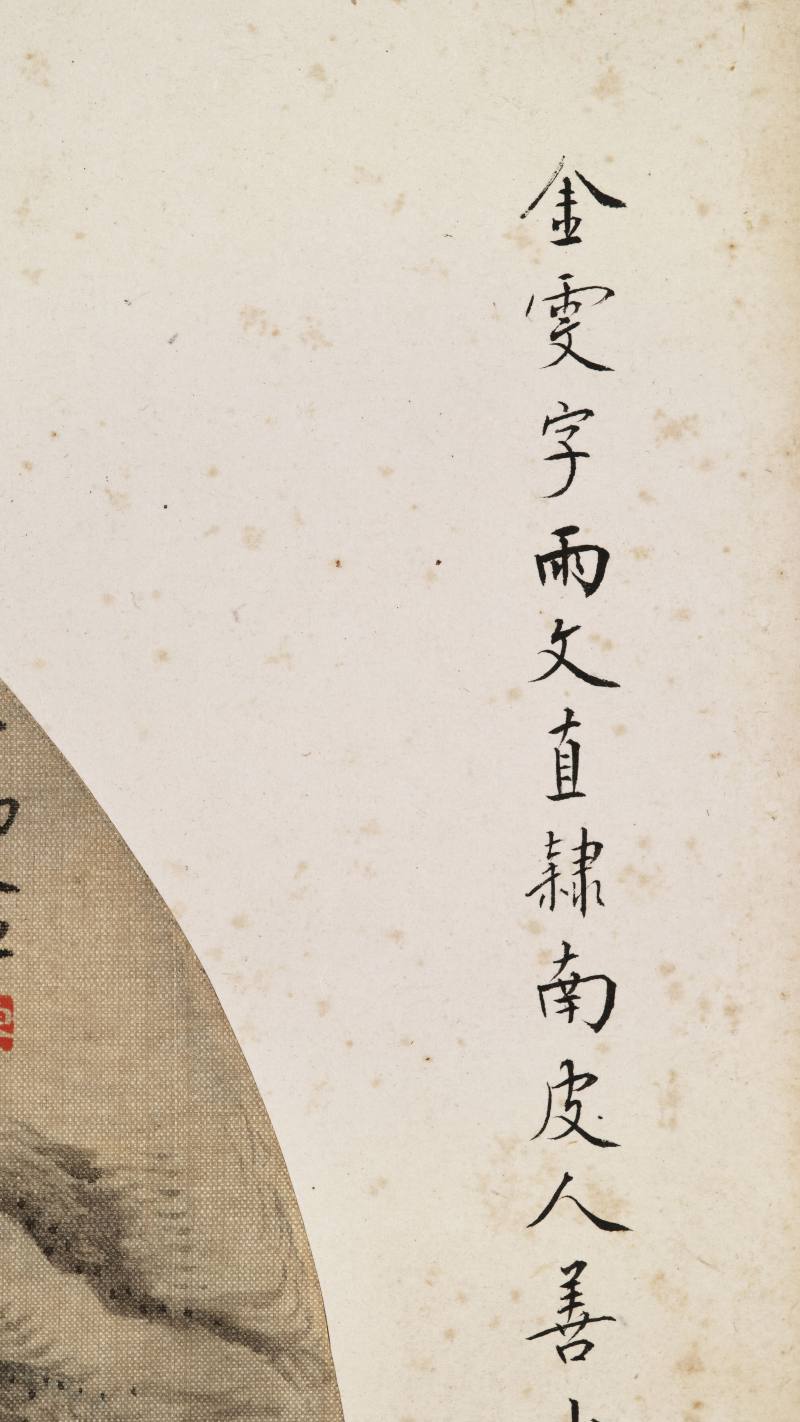 金雯字雨文直隸南皮人善